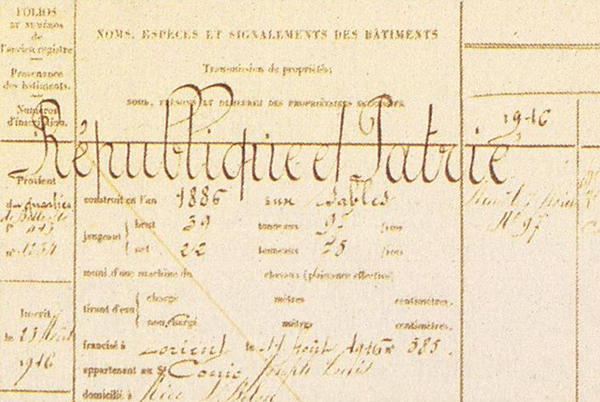 FOLIOS
ET NUMÉROS
de
l'ancien registre
Provenance
des bâtiments.
Numéros
d'inscription.
NOMS, ESPÈCES ET SIGNALEMENTS DES BÂTIMENTS
Transmission de propriétés;
NOMS, PRÉNOMS ET DEMEURES DES PROPRIÉTAIRES SUCCESSIFS
1916
République et Patrie
Provient
du quartier
de Belle-Ile
n° 1234
construit en l'an 1886 aux Sables
jaugeant brut 39 tonneaux 95
net 22 tonneaux 75
N° 97
muni d'une machine de chevaux (puissance effective)
tirant d'eau chargé mètres centimètres.
non chargé mètres centimètres.
Inscrit
le 23 Août
1916
francisé à Lorient le Août 1916 n° 585.
appartenant au Sr Joseph Louis
domicilié à